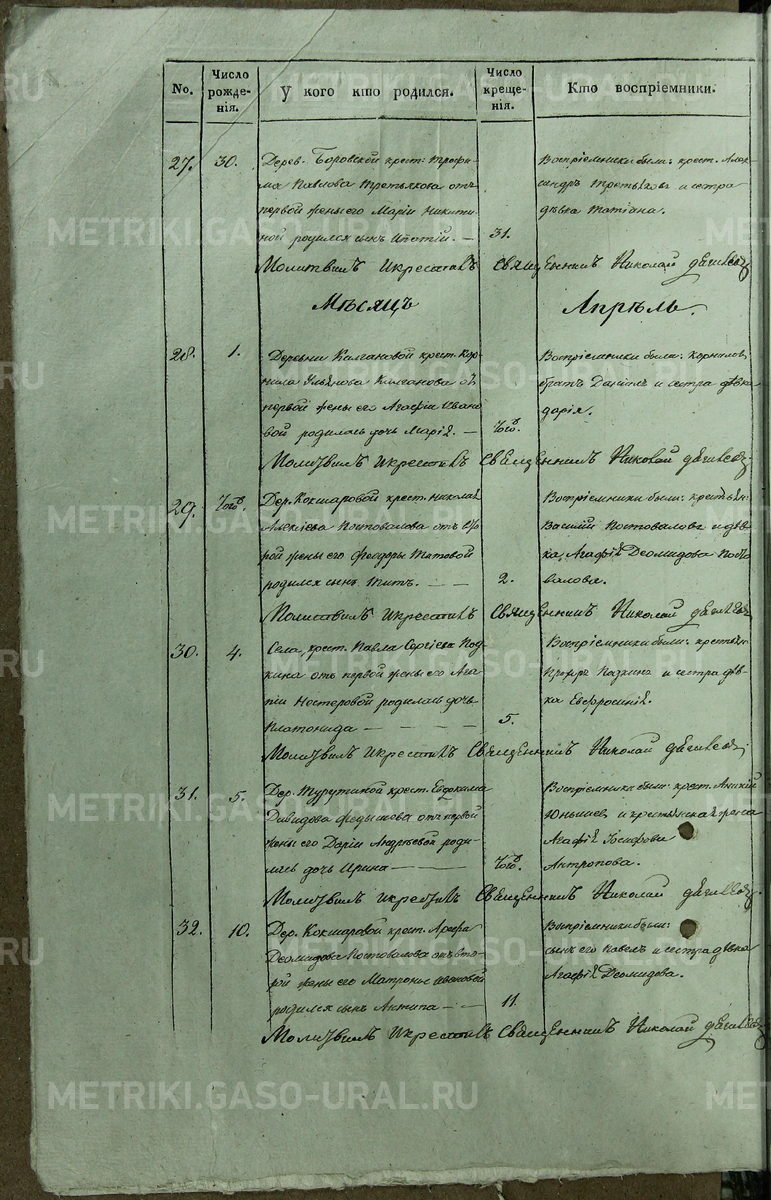 No.
Число рожде-нія.
У кого кто родился.
Число креще-нія.
Кто воспріемники.
27.
30.
Дерев. Боровской крест: Трофи-
ма Павлова Третьякова отъ
первой жены его Маріи Никити-
ной родился сынъ Ипатій. —
31.
Воспріемники были: крест. Алек-
сандръ Третьяковъ и сестра
дѣвка Татіана.
Молитвилъ и крестилъ Священникъ Николай
Мѣсяцъ Апрѣль.
28.
1.
Деревни Калгановой крест. Кор-
нила Ульянова Калганова отъ
первой жены его Агафіи Ивано-
вой родилась дочь Марія. —
Того.
Воспріемники были: корнилов
братъ Даніилъ и сестра дѣвка
Дарія.
Молитвилъ и крестилъ Священникъ Николай
29.
Того.
Дер. Кокшаровой крест. Николая
Алексіева Постовалова отъ вто-
рой жены его Феодоры Титовой
родился сынъ Титъ. — —
2.
Воспріемники были: крестьян.
Василій Постоваловъ и дѣв-
ка Агафія Деомидова Посто-
валова.
Молитвилъ и крестилъ Священникъ Николай
30.
4.
Села, крест. Павла Сергіева
отъ первой жены его Ага-
піи Нестеровой родилась дочь
Платонида — — — —
5.
Воспріемники были: крестьян.
и сестра дѣв-
ка Евфросинія.
Молитвилъ и крестилъ Священникъ Николай
31.
5.
Дер. Турутиной крест. Евфима
Давидова отъ первой
жены его Даріи Андреевой роди-
лась дочь Ирина — —
Того.
Воспріемники были: крест.
и крестьянская жена
Агафія Іосифова
Антропова.
Молитвилъ и крестилъ Священникъ Николай
32.
10.
Дер. Кокшаровой крест.
Деомидова Постовалова отъ вто-
рой жены его Матроны Ивановой
родился сынъ Антипа — —
11.
Воспріемники были:
сынъ его Павелъ и сестра дѣвка
Агафія Деомидова.
Молитвилъ и крестилъ Священникъ Николай
METRIKI.GASO-URAL.RU